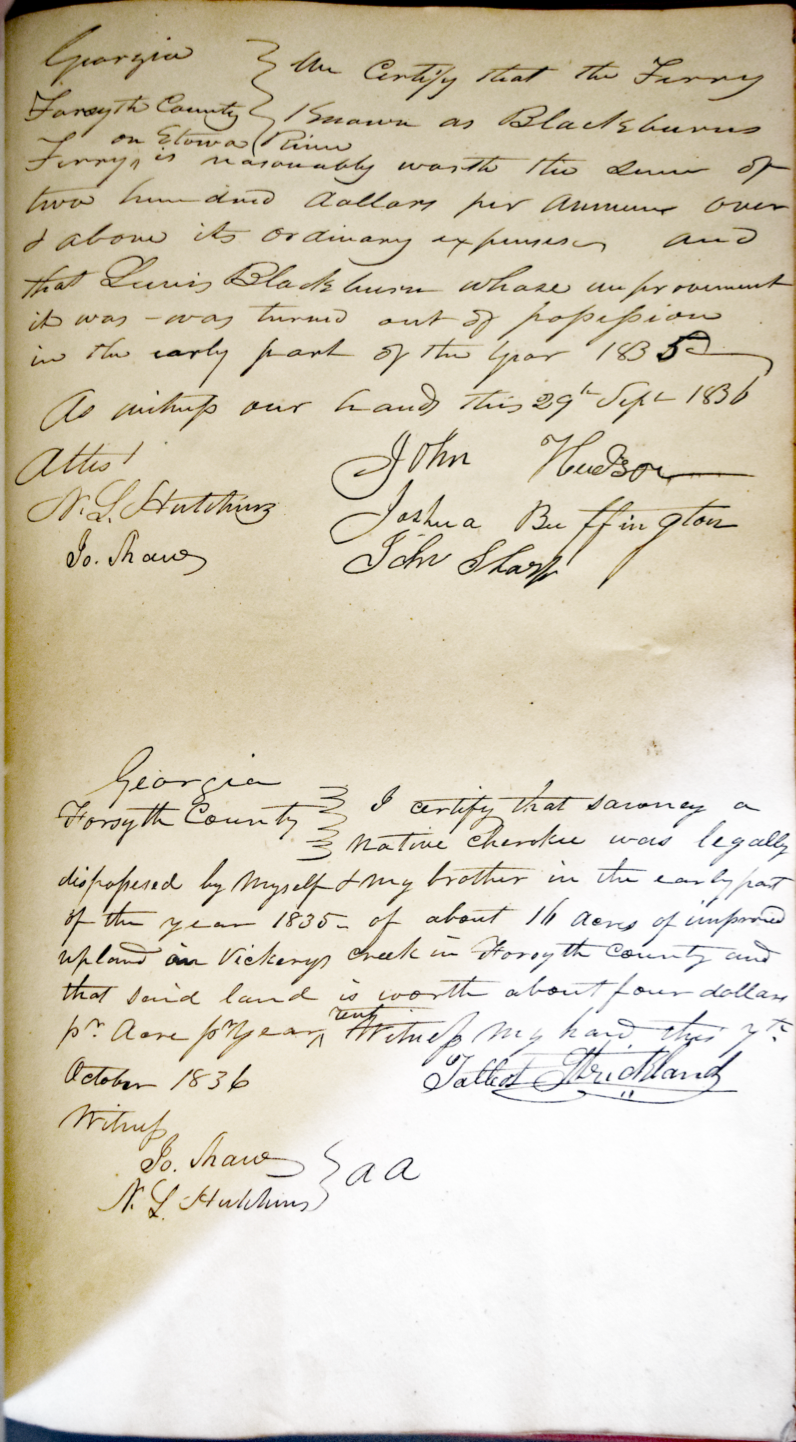 Georgia
Forsyth County
We Certify that the Ferry
Known as Blackburns
on Etowa River
Ferry, is reasonably worth the Sum of
two hundred dollars per Annum over
& above its ordinary expenses, and
that Lewis Blackburn whose improvement
it was - was turned out of possession
in the early part of the year 1835
As witness our hands this 29th Sept 1836
Attest
John Hudson
N. L. Hutchins
Joshua Buffington
Jo. Shaw
John Sharp
Georgia
Forsyth County
I certify that sawney a
native cherokee was legally
dispossesed by myself & my brother in the early part
of the year 1835 - of about 16 Acres of improved
upland on Vickerys creek in Forsyth County and
that said land is worth about four dollars
rent
pr Acre pr year, Witness my hand this 7th
October 1836
Talbot Strickland
Witness
Jo. Shaw
N. L. Hutchins
a a